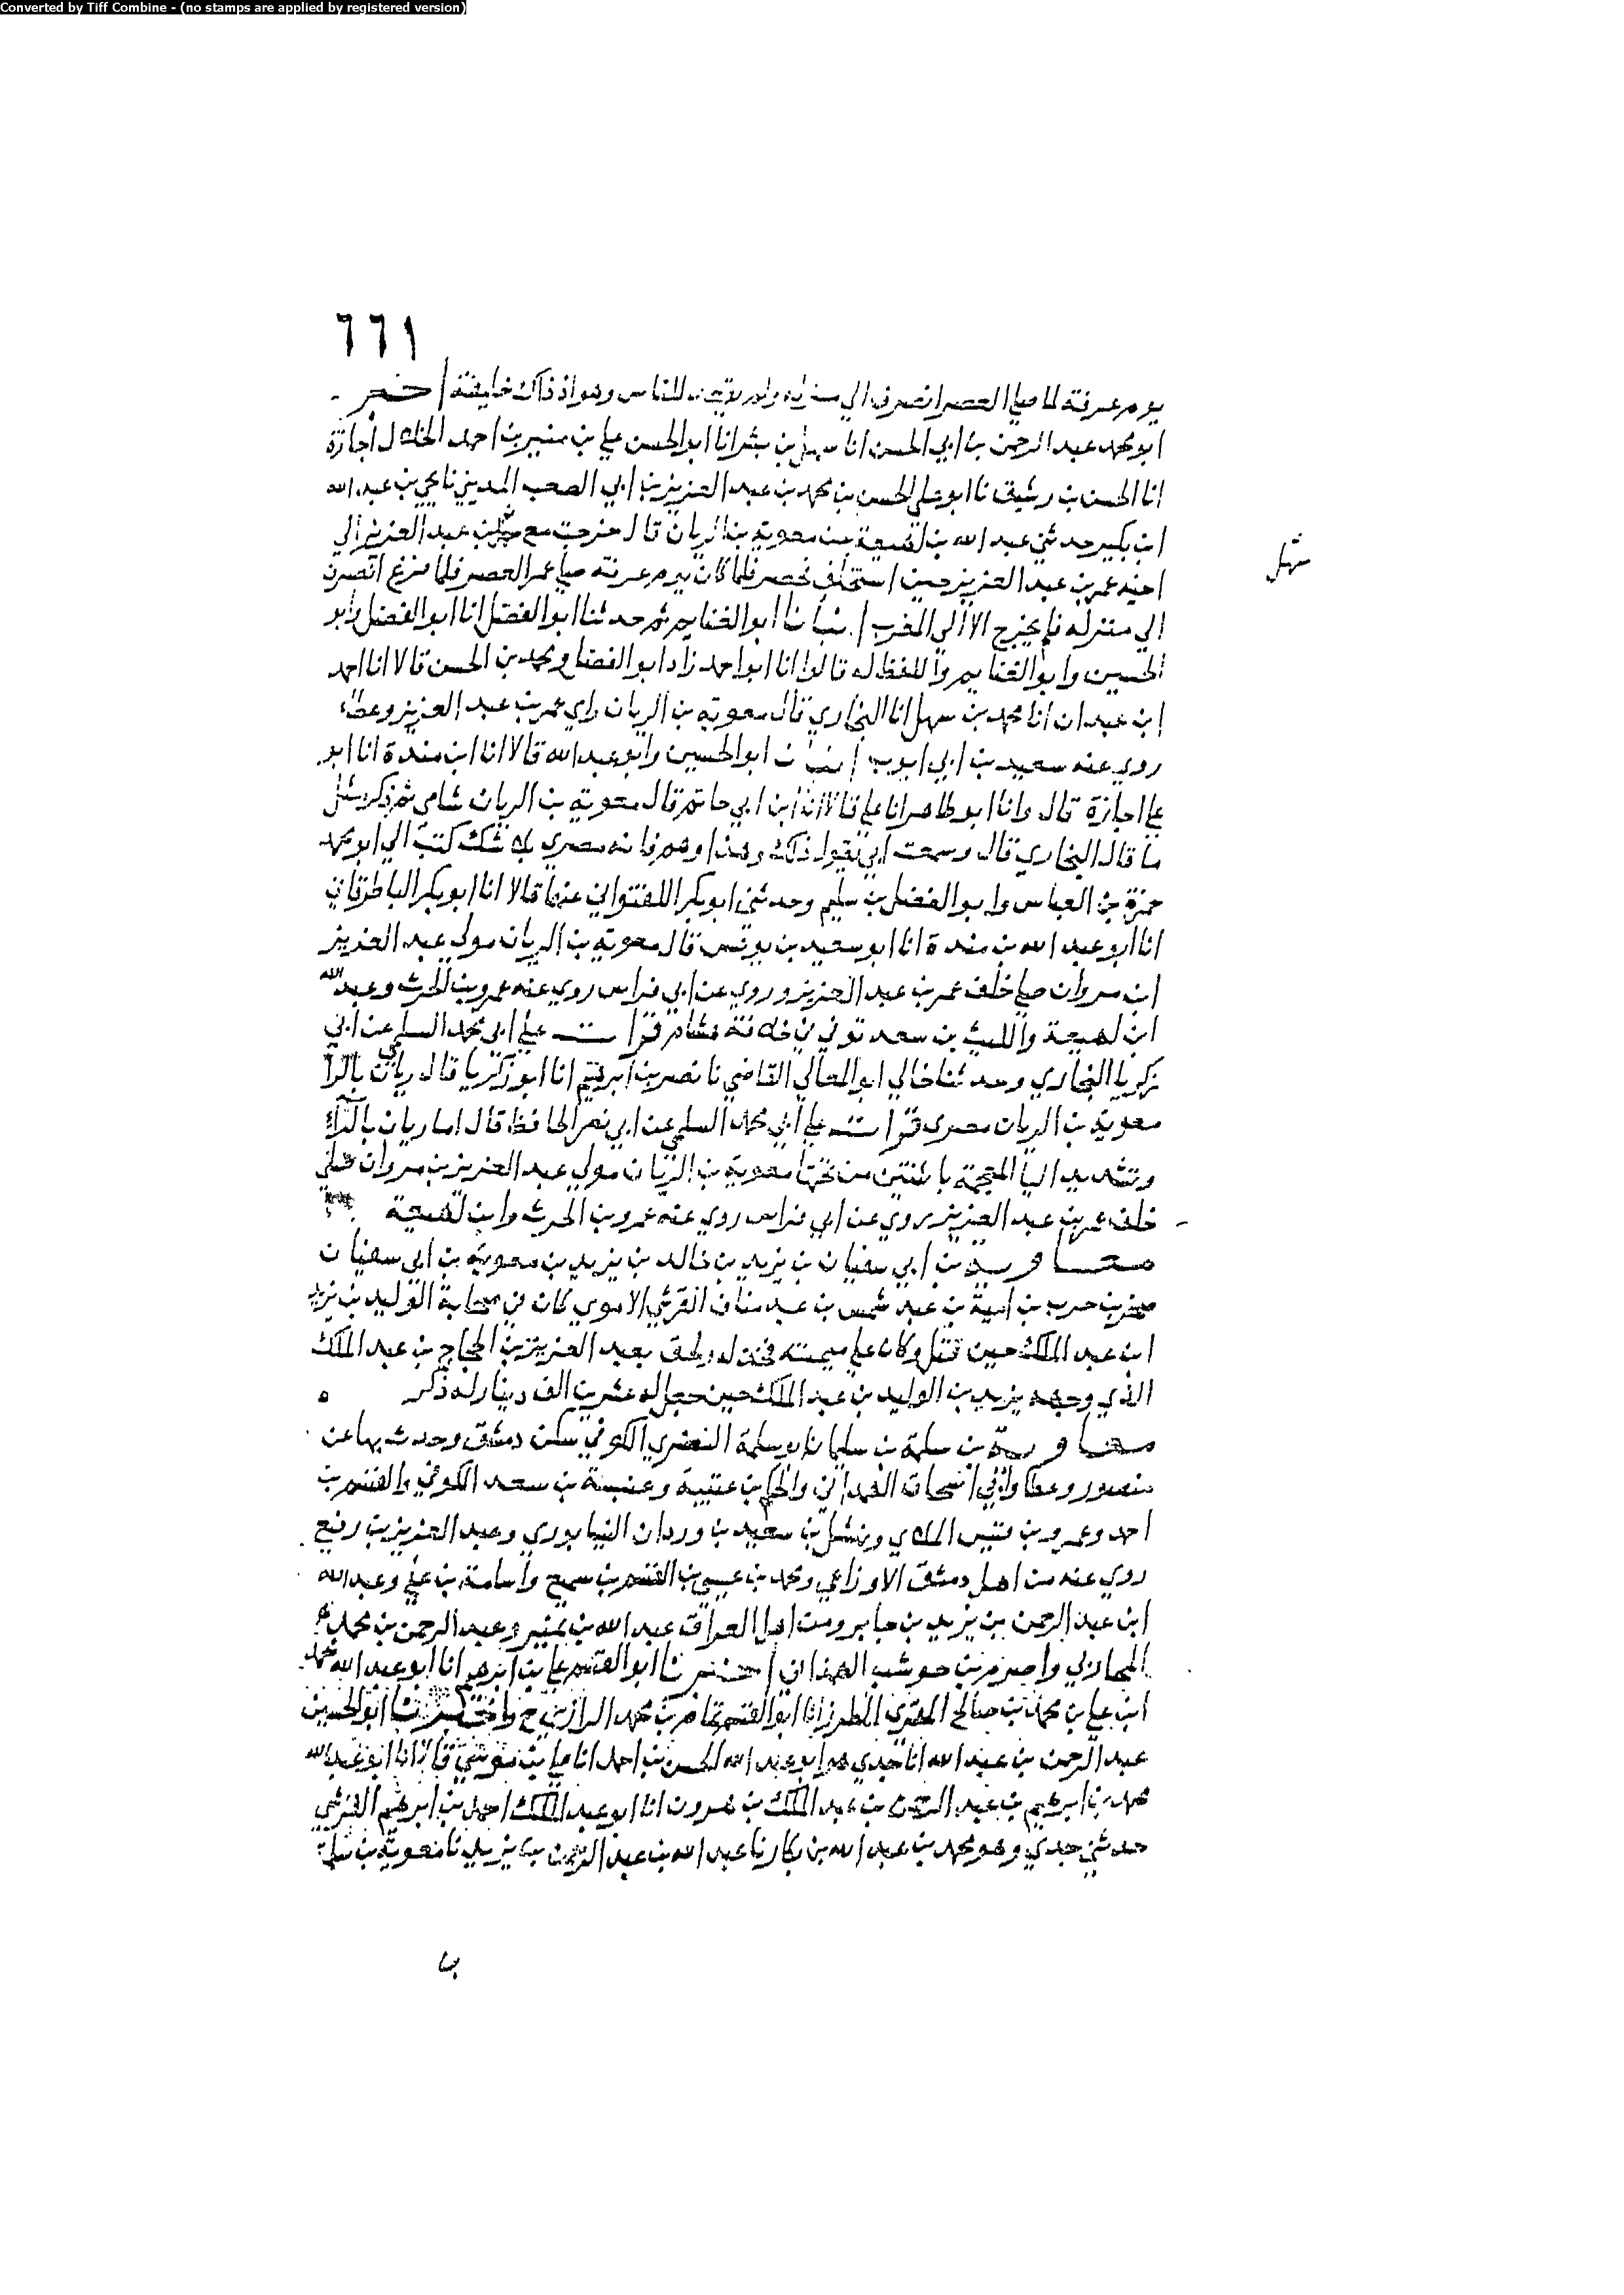 Converted by Tiff Combine - (no stamps are applied by registered version)
٦٦١
يوم عرفة لما صلى العصر انصرف الي منزله ولم للناس وهو اذ ذاك خليفة اخبر
ابو محمد عبد الرحمن بن ابي الحسن انا سهل بن بشر انا ابو الحسن علي بن منير بن احمد الخلال اجازة
انا الحسن بن رشيق نا ابو علي الحسن بن محمد بن عبد العزيز بن ابي الصعب المديني نا يحيي بن عبد الله
ابن بكير حدثني عبد الله بن لهيعة عن معوية بن الريان قال خرجت مع سهل بن عبد العزيز الي
سهل
اخيه عمر بن عبد العزيز حين استخلف فحضر فلما كان يوم عرفة صلي عمر العصر فلما فرغ انصرف
الي منزله فلم يخرج الا الي المغرب انبانا ابو الغنايم ثم حدثنا ابو الفضل انا ابو الفضل وابو
الحسين وابو الغنايم واللفظ له قالوا انا ابو احمد زاد ابو الفضل ومحمد بن الحسن قالا انا احمد
ابن عبدان انا محمد بن سهل انا البخاري قال معوية بن الريان راي عمر بن عبد العزيز وعطاء
روي عنه سعيد بن ابي ايوب انبانا ابو الحسين وابو عبد الله قالا انا ابن مندة انا ابو
علي اجازة قال وانا ابو طاهر انا علي قالا انا ابن ابي حاتم قال معوية بن الريان شامي ثم ذكر مثل
ما قال البخاري قال وسمعت ابي يقول ذلك وهذا وهم فانه مصري بلا شك كتب الي ابو محمد
حمزة بن العباس وابو الفضل بن سليم وحدثني ابو بكر اللفتواني عنهما قالا انا ابو بكر الباطرقاني
انا ابو عبد الله بن مندة انا ابو سعيد بن يونس قال معوية بن الريان مولي عبد العزيز
ابن مروان صلي خلف عمر بن عبد العزيز وروي عن ابي فراس روي عنه عمرو بن الحرث وعبد الله
ابن لهيعة والليث بن سعد توفي في خلافة هشام قرات علي ابي محمد السلمي عن ابي
زكريا البخاري وحدثنا خالي ابو المعالي القاضي نا نصر بن ابرهيم انا ابو زكريا قال ريان بالرا
معوية بن الريان مصري قرات علي ابي محمد السلمي عن ابي نصر الحافظ قال اما ريان بالراء
وتشديد اليا المعجمة باثنتين من تحتها معوية بن الريان مولي عبد العزيز بن مروان صلي
خلف عمر بن عبد العزيز روي عن ابي فراس روي عنه عمرو بن الحرث وابن لهيعة
معاوية بن ابي سفيان بن يزيد بن خالد بن يزيد بن معوية بن ابي سفيان
صخر بن حرب بن امية بن عبد شمس بن عبد مناف القرشي الاموي كان في صحابة الوليد بن يزيد
ابن عبد الملك حين قتل وكان علي ميمنته فخذله ولحق بعبد العزيز بن الحجاج بن عبد الملك
الذي وجهه يزيد بن الوليد بن عبد الملك حين جعل له عشرين الف دينار له ذكر
معاوية بن سلمة بن سليمان ابو سلمة النصري الكوفي سكن دمشق وحدث بها عن
منصور وعطا وابي اسحاق الهمداني والحكم بن عتيبة وعنبسة بن سعد الكوفي والقسم بن
احمد وعمرو بن قيس الملاي ونهشل بن سعيد بن وردان النيسابوري وعبد العزيز بن رفيع
روي عنه من اهل دمشق الاوزاعي ومحمد بن عيسي بن القسم بن سميع واسامة بن علي وعبد الله
ابن عبد الرحمن بن يزيد بن جابر ومن اهل العراق عبد الله بن نمير وعبد الرحمن بن محمد
المحاربي واصرم بن حوشب الهمداني اخبرنا ابو القسم علي بن ابرهيم انا ابو عبد الله محمد
ابن علي بن محمد بن صالح المقري المطرز انا ابو القسم تمام بن محمد الرازي ح واخبرنا ابو الحسين
عبد الرحمن بن عبد الله انا جدي ابو عبد الله الحسن بن احمد انا علي بن موسي قالا انا ابو عبد الله
محمد بن ابرهيم بن عبد الرحمن بن عبد الملك بن مروان انا ابو عبد الملك احمد بن ابرهيم القرشي
حدثني جدي وهو محمد بن عبد الله بن بكار نا عبد الله بن عبد الرحمن بن يزيد نا معوية بن سلمة